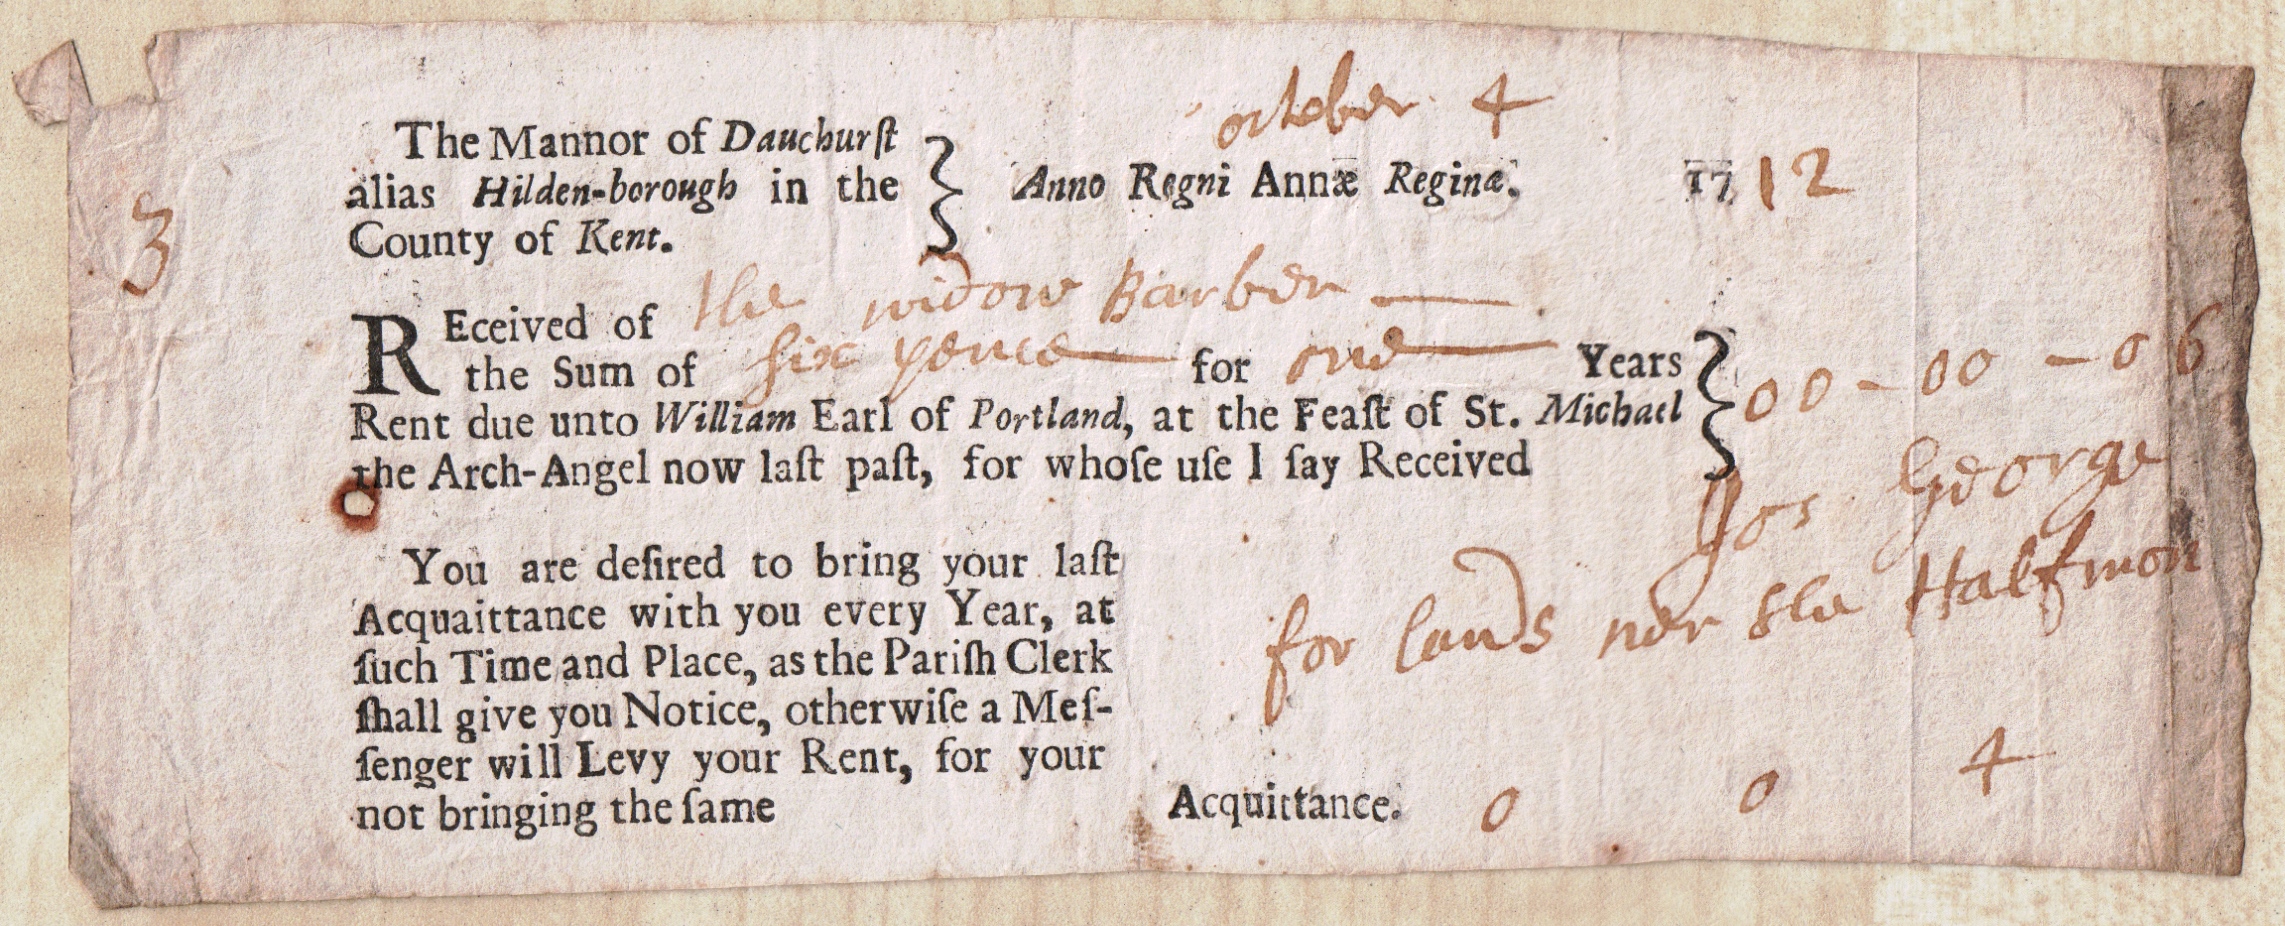 october 4
The Mannor of Dauchurſt
alias Hilden-borough in the
County of Kent.
Anno Regni Annæ Reginæ. 1712
3
REceived of the widow Barber
the Sum of six pence for one Years
Rent due unto William Earl of Portland, at the Feaſt of St. Michael
the Arch-Angel now laſt paſt, for whoſe uſe I ſay Received
00-00-06
Jos George
for lands ner the Halfmon
You are deſired to bring your laſt
Acquaittance with you every Year, at
ſuch Time and Place, as the Pariſh Clerk
ſhall give you Notice, otherwiſe a Meſ-
ſenger will Levy your Rent, for your
not bringing the ſame Acquittance. 0 0 4